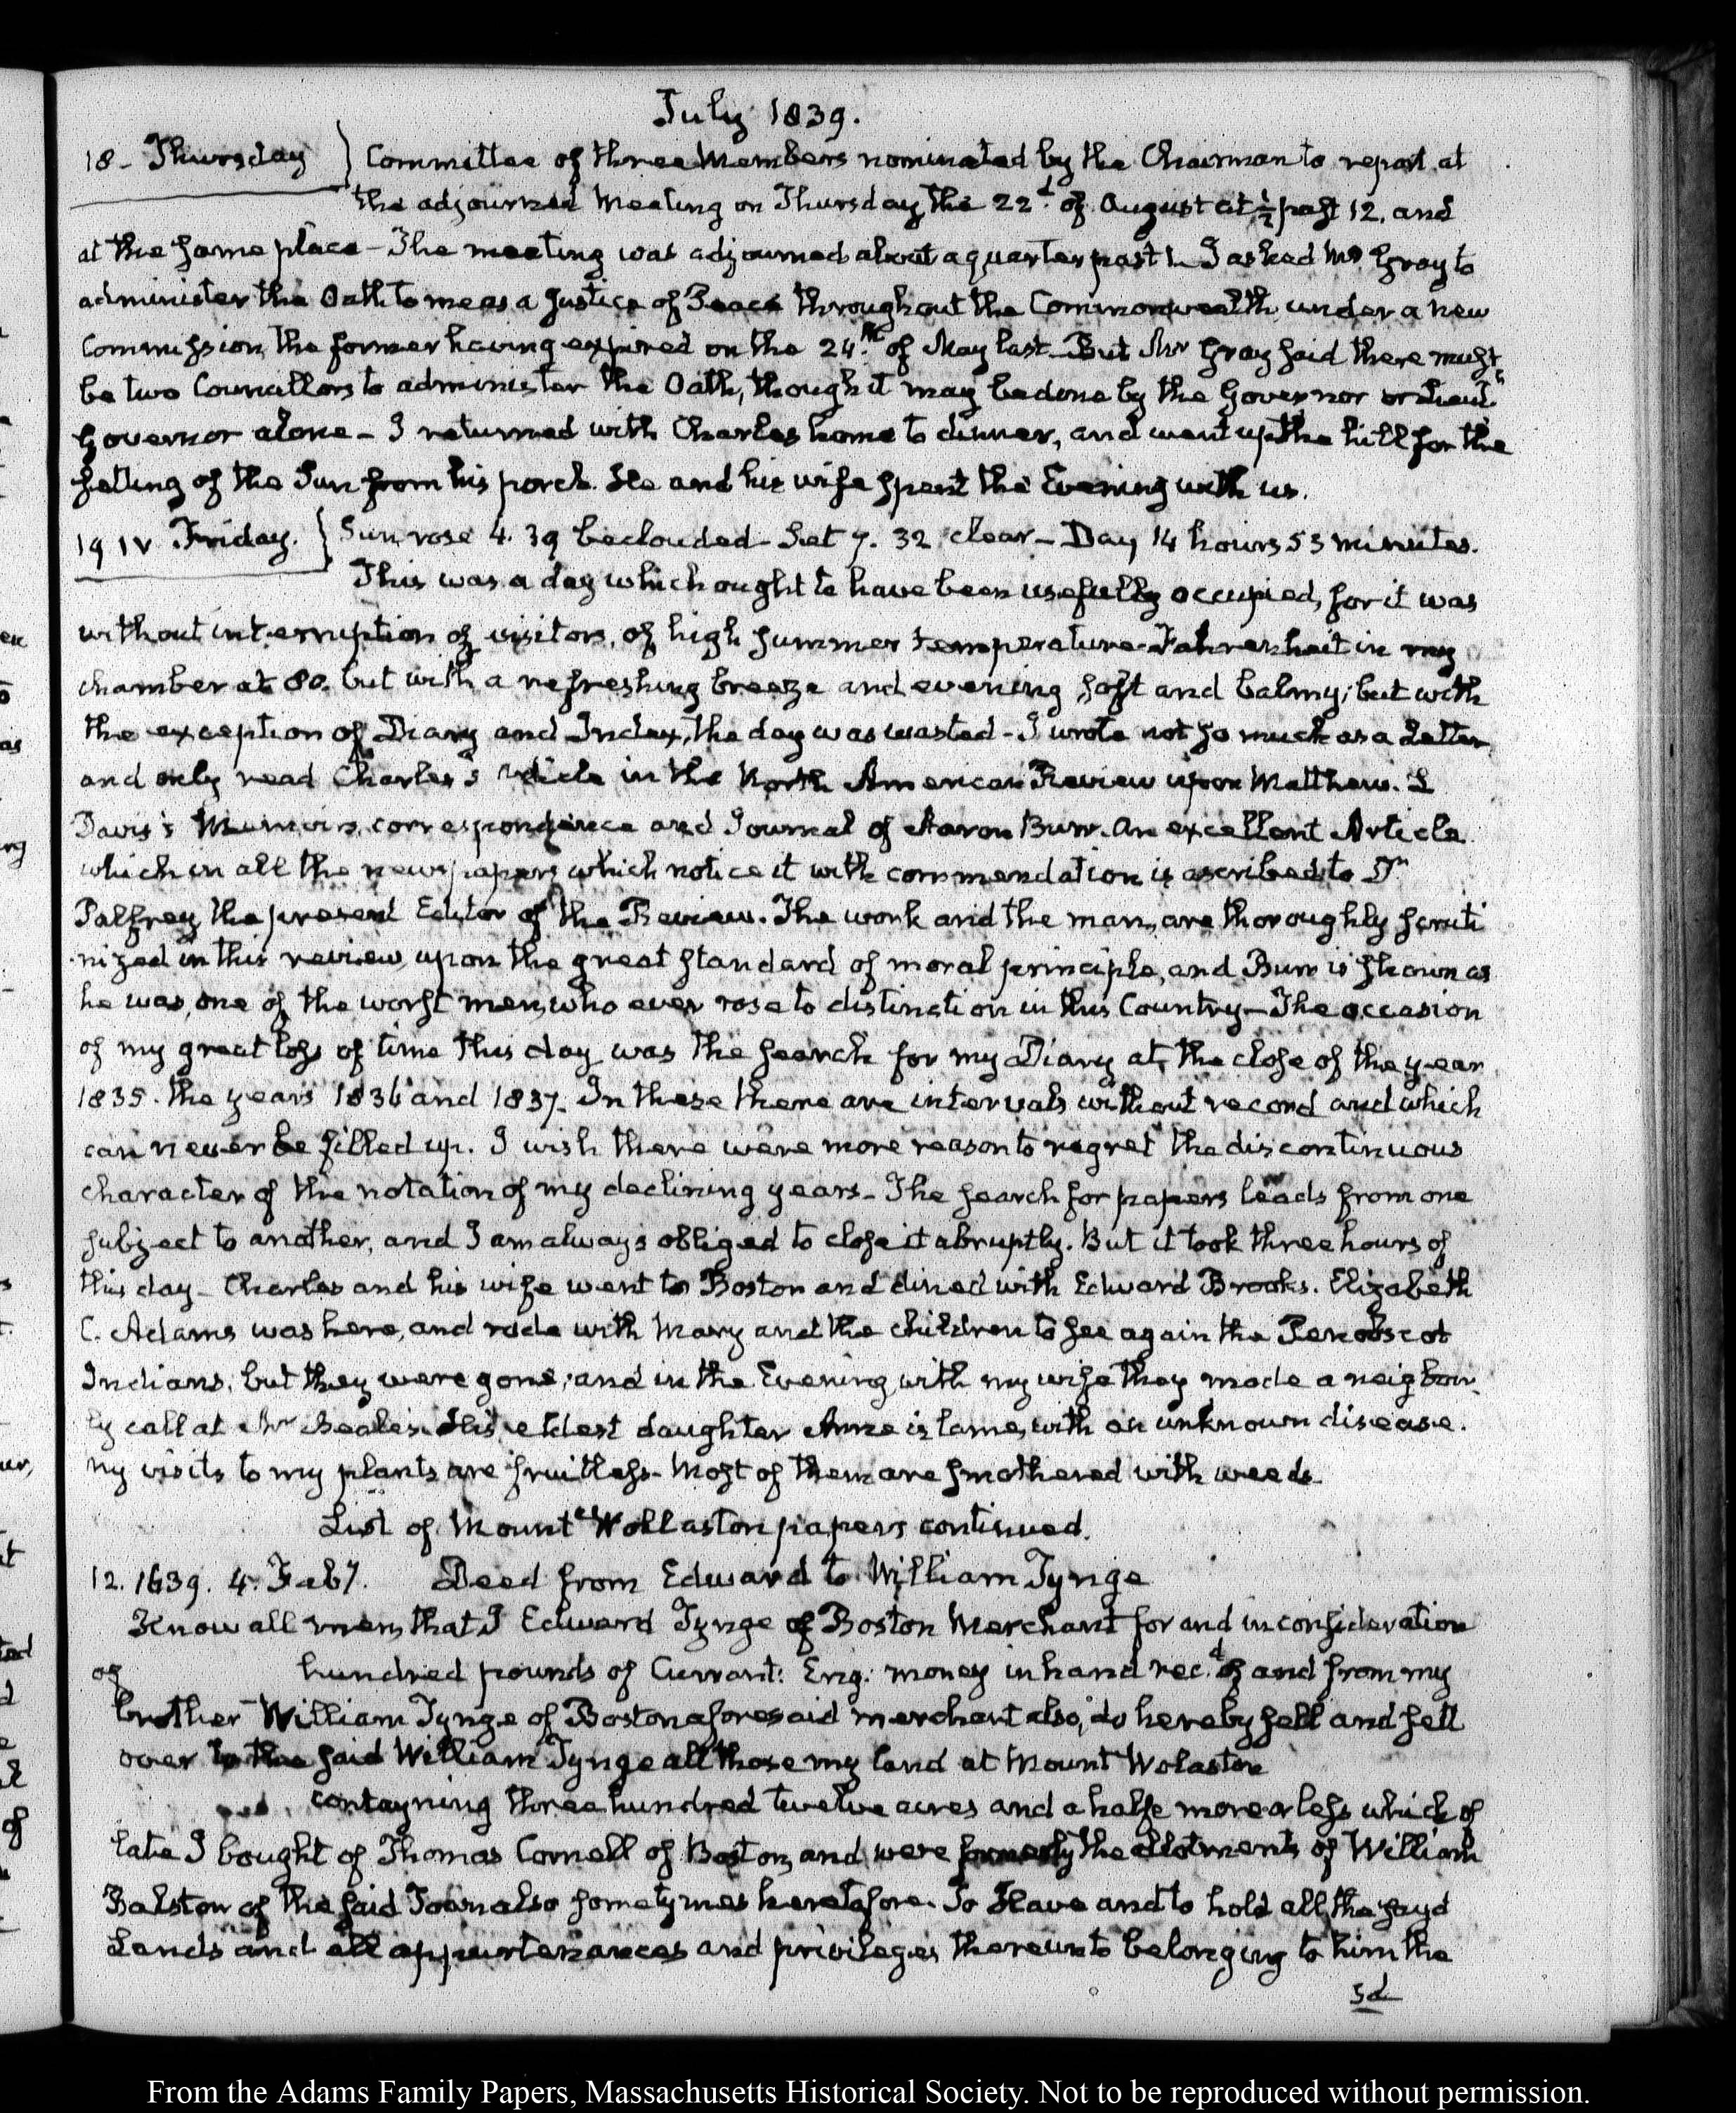 July 1839.
18- Thursday } Committee of three Members nominated by the Chairman to report at
the adjourned Meeting on Thursday the 22d. of August at ½ past 12. and
at the same place - The meeting was adjourned about a quarter past 1. I asked Mr Gray to
administer the Oath to me as a Justice of Peace throughout the Commonwealth, under a new
Commission, the former having expired on the 24.th of May last - But Mr Gray said there must
be two Councillors to administer the Oath, though it may be done by the Governor or Lieut.t
Governor alone - I returned with Charles home to dinner, and went up the hill for the
setting of the Sun from his porch. He and his wife spent the Evening with us.
19 IV. Friday. } Sun rose 4. 39 beclouded - Set 7. 32 clear - Day 14 hours 53 minutes.
This was a day which ought to have been usefully occupied, for it was
without interruption of visitors, of high summer temperature - Fahrenheit in my
chamber at 80. but with a refreshing breeze and evening soft and balmy; but with
the exception of Diary and Index, the day was wasted - I wrote not so much as a Letter
and only read Charles's Article in the North American Review upon Matthew. L
Davis's Memoirs, correspondence and Journal of Aaron Burr. An excellent Article
which in all the newspapers which notice it with commendation is ascribed to Dr
Palfrey the present Editor of the Review. The work and the man, are thoroughly scruti
nized in this review, upon the great standard of moral principle, and Burr is shown as
he was, one of the worst men, who ever rose to distinction in this Country - The occasion
of my great loss of time this day was the search for my Diary at the close of the year
1835. the years 1836 and 1837. In these there are intervals without record and which
can never be filled up. I wish there were more reason to regret the discontinuous
character of the notation of my declining years - The search for papers leads from one
subject to another, and I am always obliged to close it abruptly. But it took three hours of
this day - Charles and his wife went to Boston and dined with Edward Brooks. Elizabeth
C. Adams was here, and rode with Mary and the children to see again the Penobscot
Indians, but they were gone; and in the Evening with my wife they made a neighbour-
ly call at Mr Beale's. His eldest daughter Anne is lame, with an unknown disease.
my visits to my plants are fruitless - Most of them are smothered with weeds.
List of Mount Wollaston papers continued.
12. 1639. 4. Feby. Deed from Edward to William Tynge
Know all men, that I Edward Tynge of Boston Merchant for and in consideration
of hundred pounds of Currant: Eng: money in hand rec.d of and from my
brother William Tynge of Boston aforesaid merchant also, do hereby sell and sett
over to the said William Tynge all those my land at Mount Wolaston
contayning three hundred twelve acres and a halfe more or less which of
late I bought of Thomas Cornell of Boston, and were formerly the allotments of William
Balston of the said Town also sometymes heretofore. To Have and to hold all the sayd
Lands and all appurtenances and privileges thereunto belonging to him the
sd
From the Adams Family Papers, Massachusetts Historical Society. Not to be reproduced without permission.